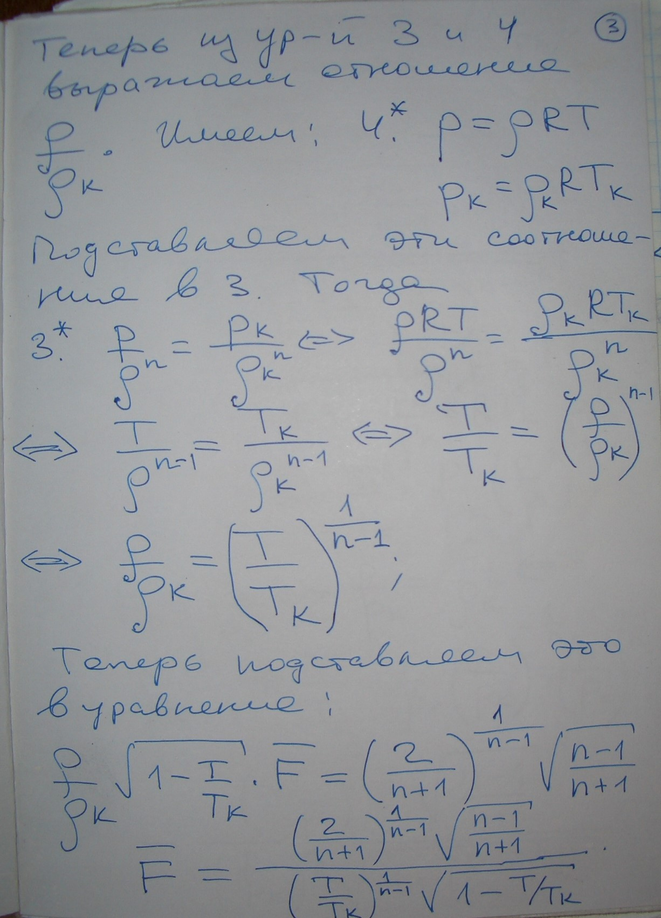 3
Теперь из ур-й 3 и 4
выражаем отношение
ρ/ρк. Имеем: 4.* p = ρRT
pк = ρкRTк
Подставляем эти соотноше-
ния в 3. Тогда
3.* p/ρ^n = pк/ρк^n <=> ρRT/ρ^n = ρкRTк/ρк^n
<=> T/ρ^(n-1) = Tк/ρк^(n-1) <=> T/Tк = (ρ/ρк)^(n-1)
<=> ρ/ρк = (T/Tк)^(1/(n-1));
Теперь подставляем это
в уравнение:
ρ/ρк √(1 - T/Tк) · F̅ = (2/(n+1))^(1/(n-1)) √((n-1)/(n+1))
F̅ = ((2/(n+1))^(1/(n-1)) √((n-1)/(n+1))) / ((T/Tк)^(1/(n-1)) √(1 - T/Tк)).